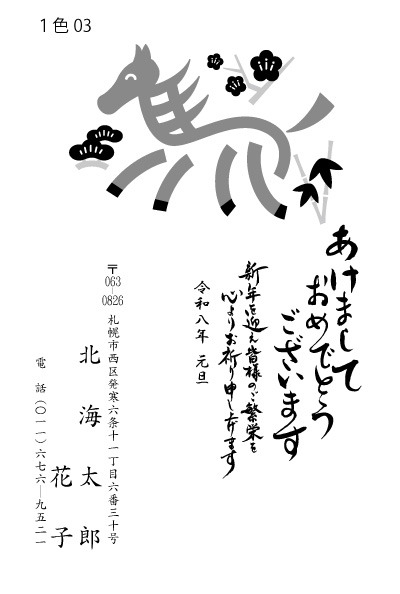 1色03
あけまして
おめでとう
ございます
新年を迎え皆様のご繁栄を
心よりお祈り申し上げます
令和八年 元旦
〒063-0826
札幌市西区発寒六条十一丁目六番三十号
北海太郎
花子
電話(〇一一)六七六―九五二一